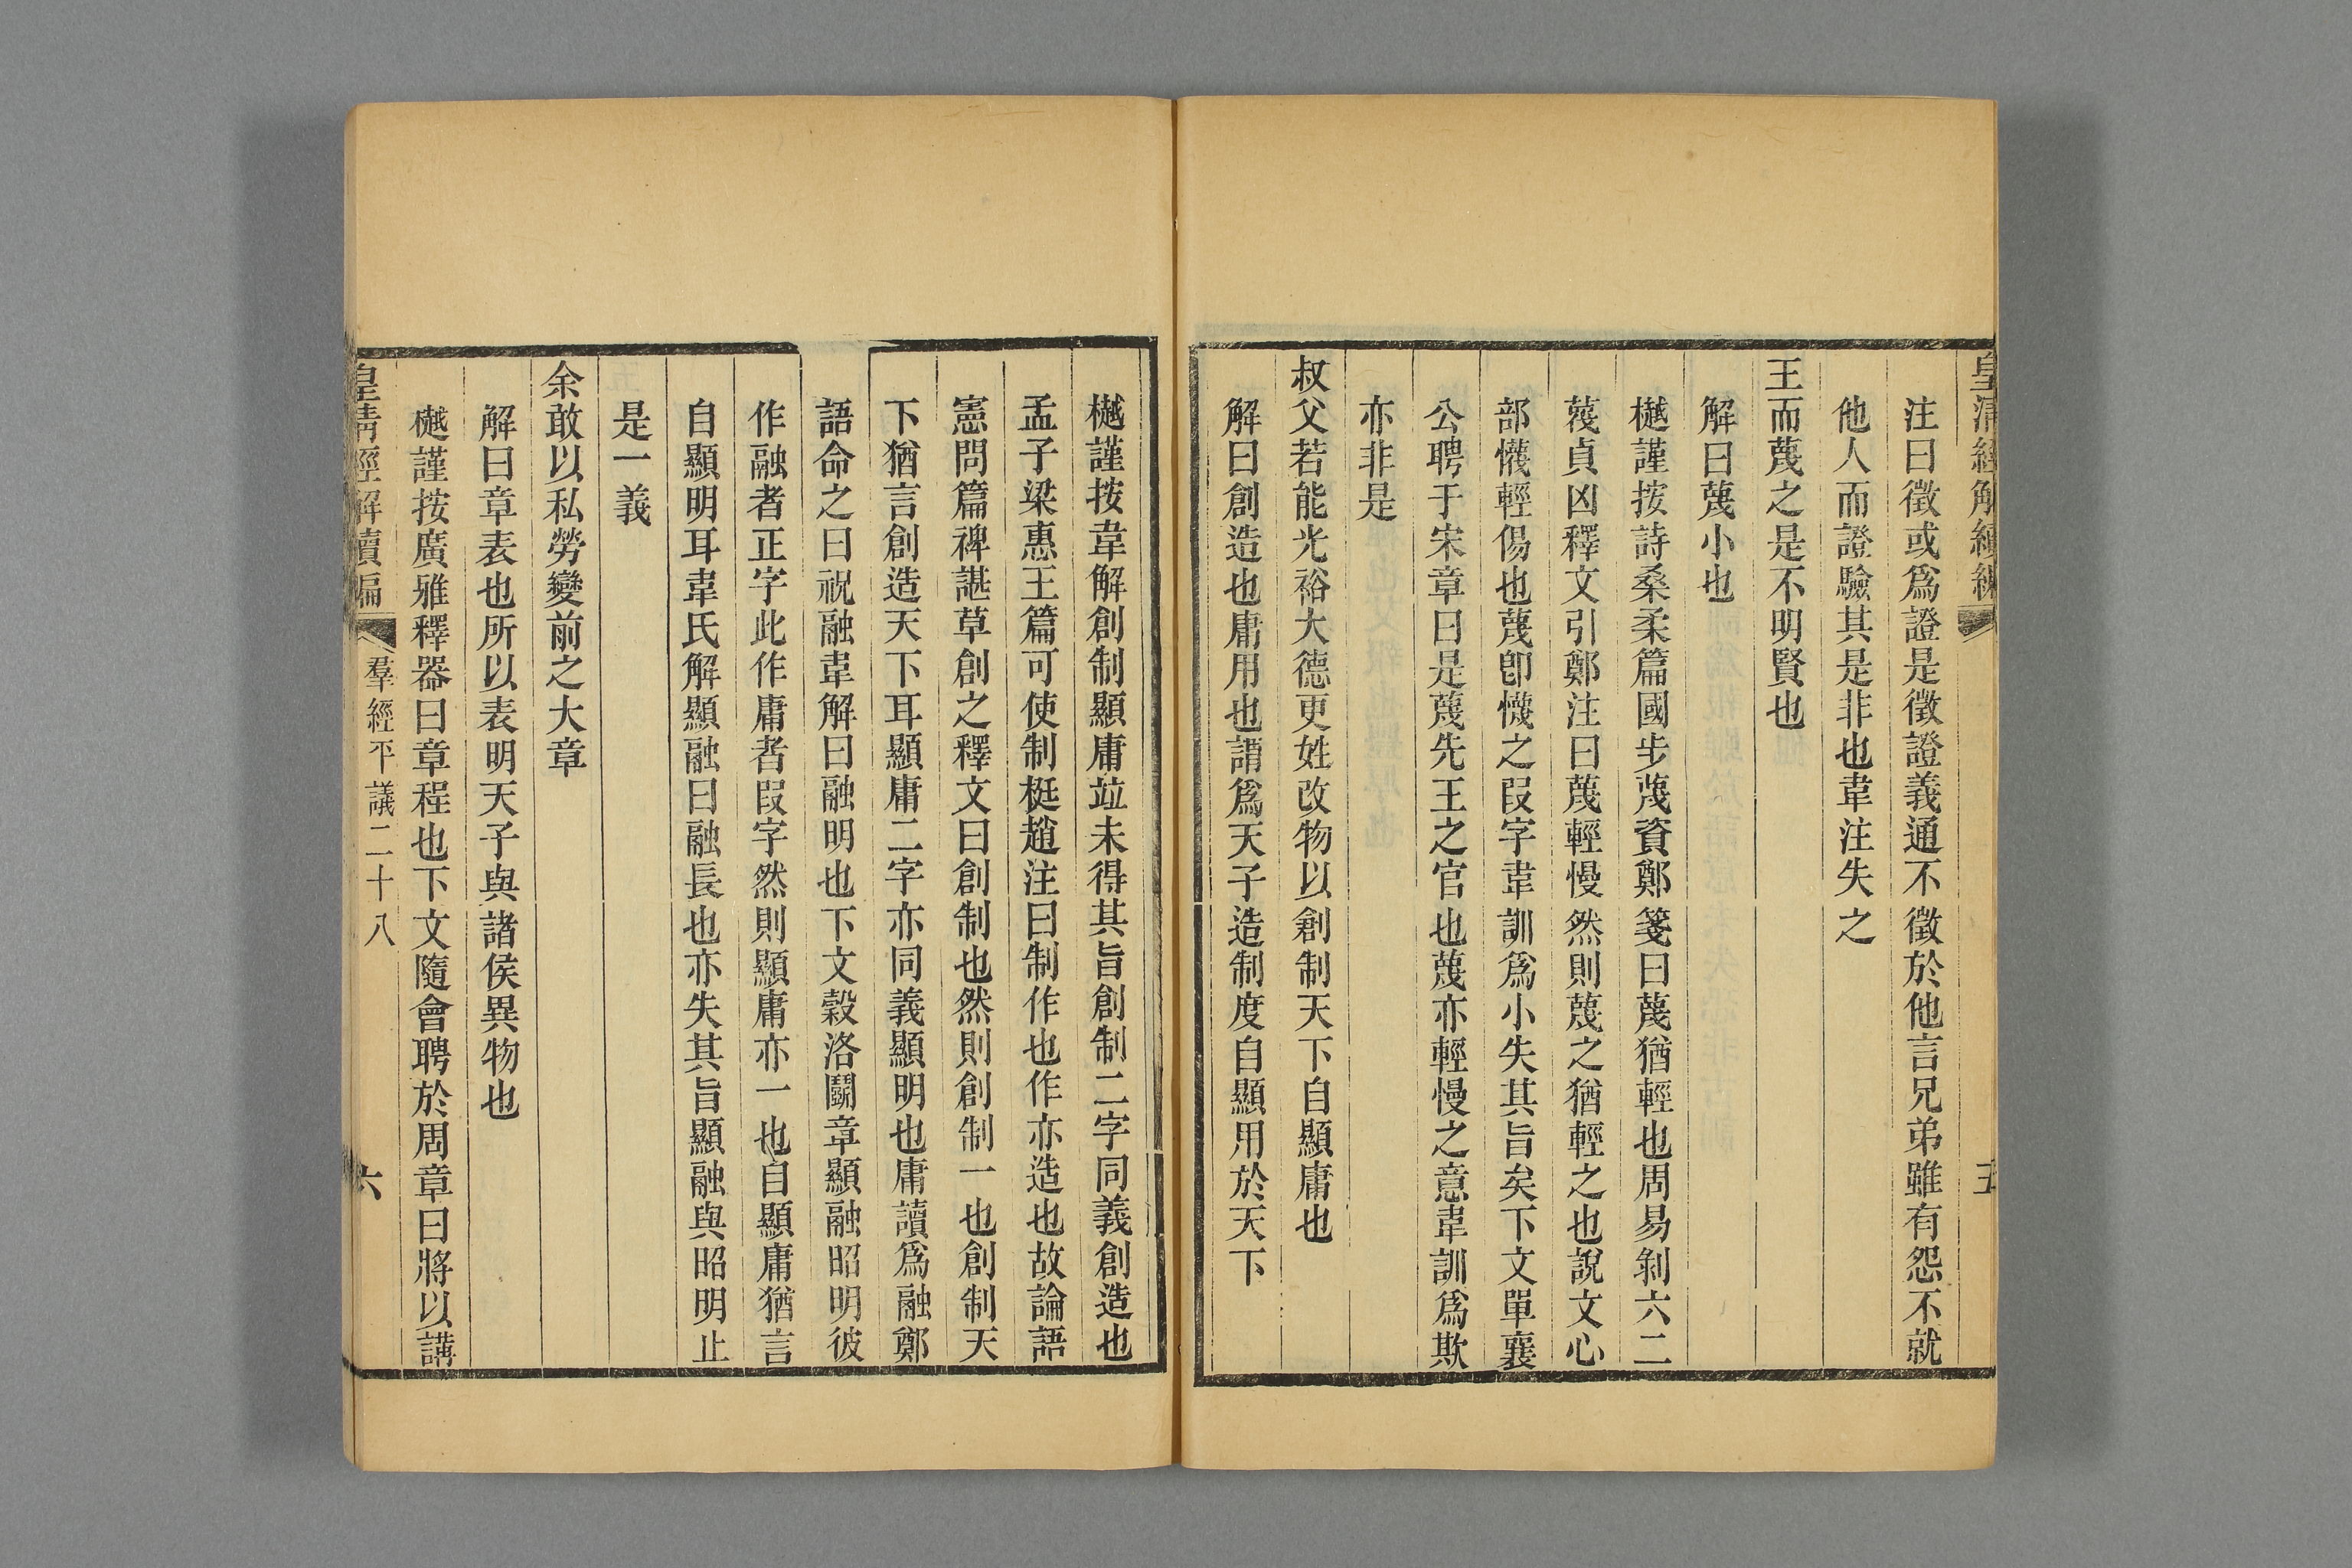 皇清經解續編
五
注曰徵或爲證是徵證義通不徵於他言兄弟雖有怨不就
他人而證驗其是非也韋注失之
王而蔑之是不明賢也
解曰蔑小也
樾謹按詩桑柔篇國步蔑資鄭箋曰蔑猶輕也周易剝六二
蔑貞凶釋文引鄭注曰蔑輕慢然則蔑之猶輕之也說文心
部懱輕傷也蔑卽懱之叚字韋訓爲小失其旨矣下文單襄
公聘于宋章曰是蔑先王之官也蔑亦輕慢之意韋訓爲欺
亦非是
叔父若能光裕大德更姓改物以創制天下自顯庸也
解曰創造也庸用也謂爲天子造制度自顯用於天下
樾謹按韋解創制顯庸竝未得其旨創制二字同義創造也
孟子梁惠王篇可使制梃趙注曰制作也作亦造也故論語
憲問篇裨諶草創之釋文曰創制也然則創制一也創制天
下猶言創造天下耳顯庸二字亦同義顯明也庸讀爲融鄭
語命之曰祝融韋解曰融明也下文穀洛鬭章顯融昭明彼
作融者正字此作庸者叚字然則顯庸亦一也自顯庸猶言
自顯明耳韋氏解顯融曰融長也亦失其旨顯融與昭明止
是一義
余敢以私勞變前之大章
解曰章表也所以表明天子與諸侯異物也
樾謹按廣雅釋器曰章程也下文隨會聘於周章曰將以講
皇清經解續編
羣經平議二十八
六